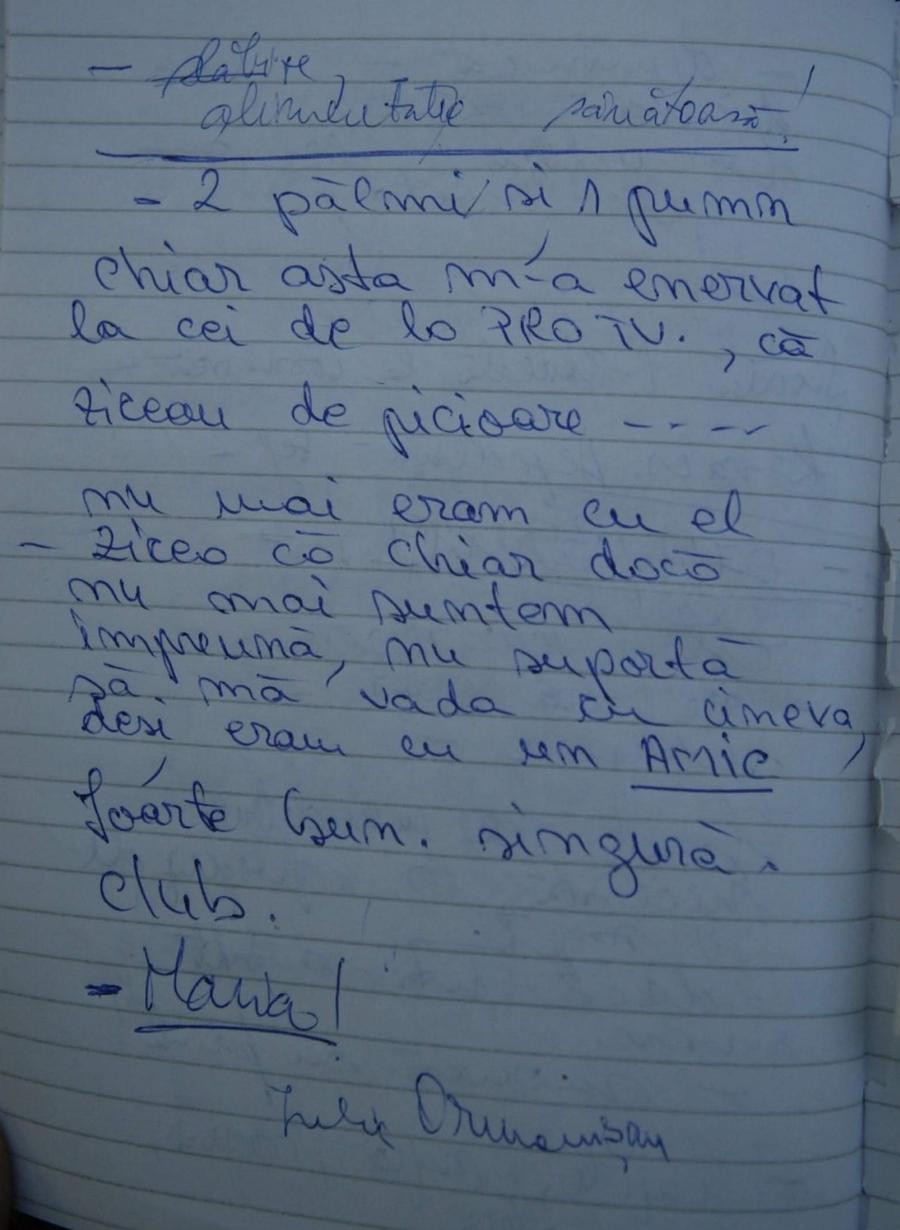 - slăbire,
alimentație sănătoasă!
- 2 pălmi și 1 pumn
chiar asta m-a enervat
la cei de la PRO TV. , că
ziceau de picioare -----
nu mai eram cu el
- zicea că chiar dacă
nu mai suntem
împreună, nu suportă
să mă vada cu cineva,
desi eram cu un Amic
foarte bun. singură.
club.
- Maria!